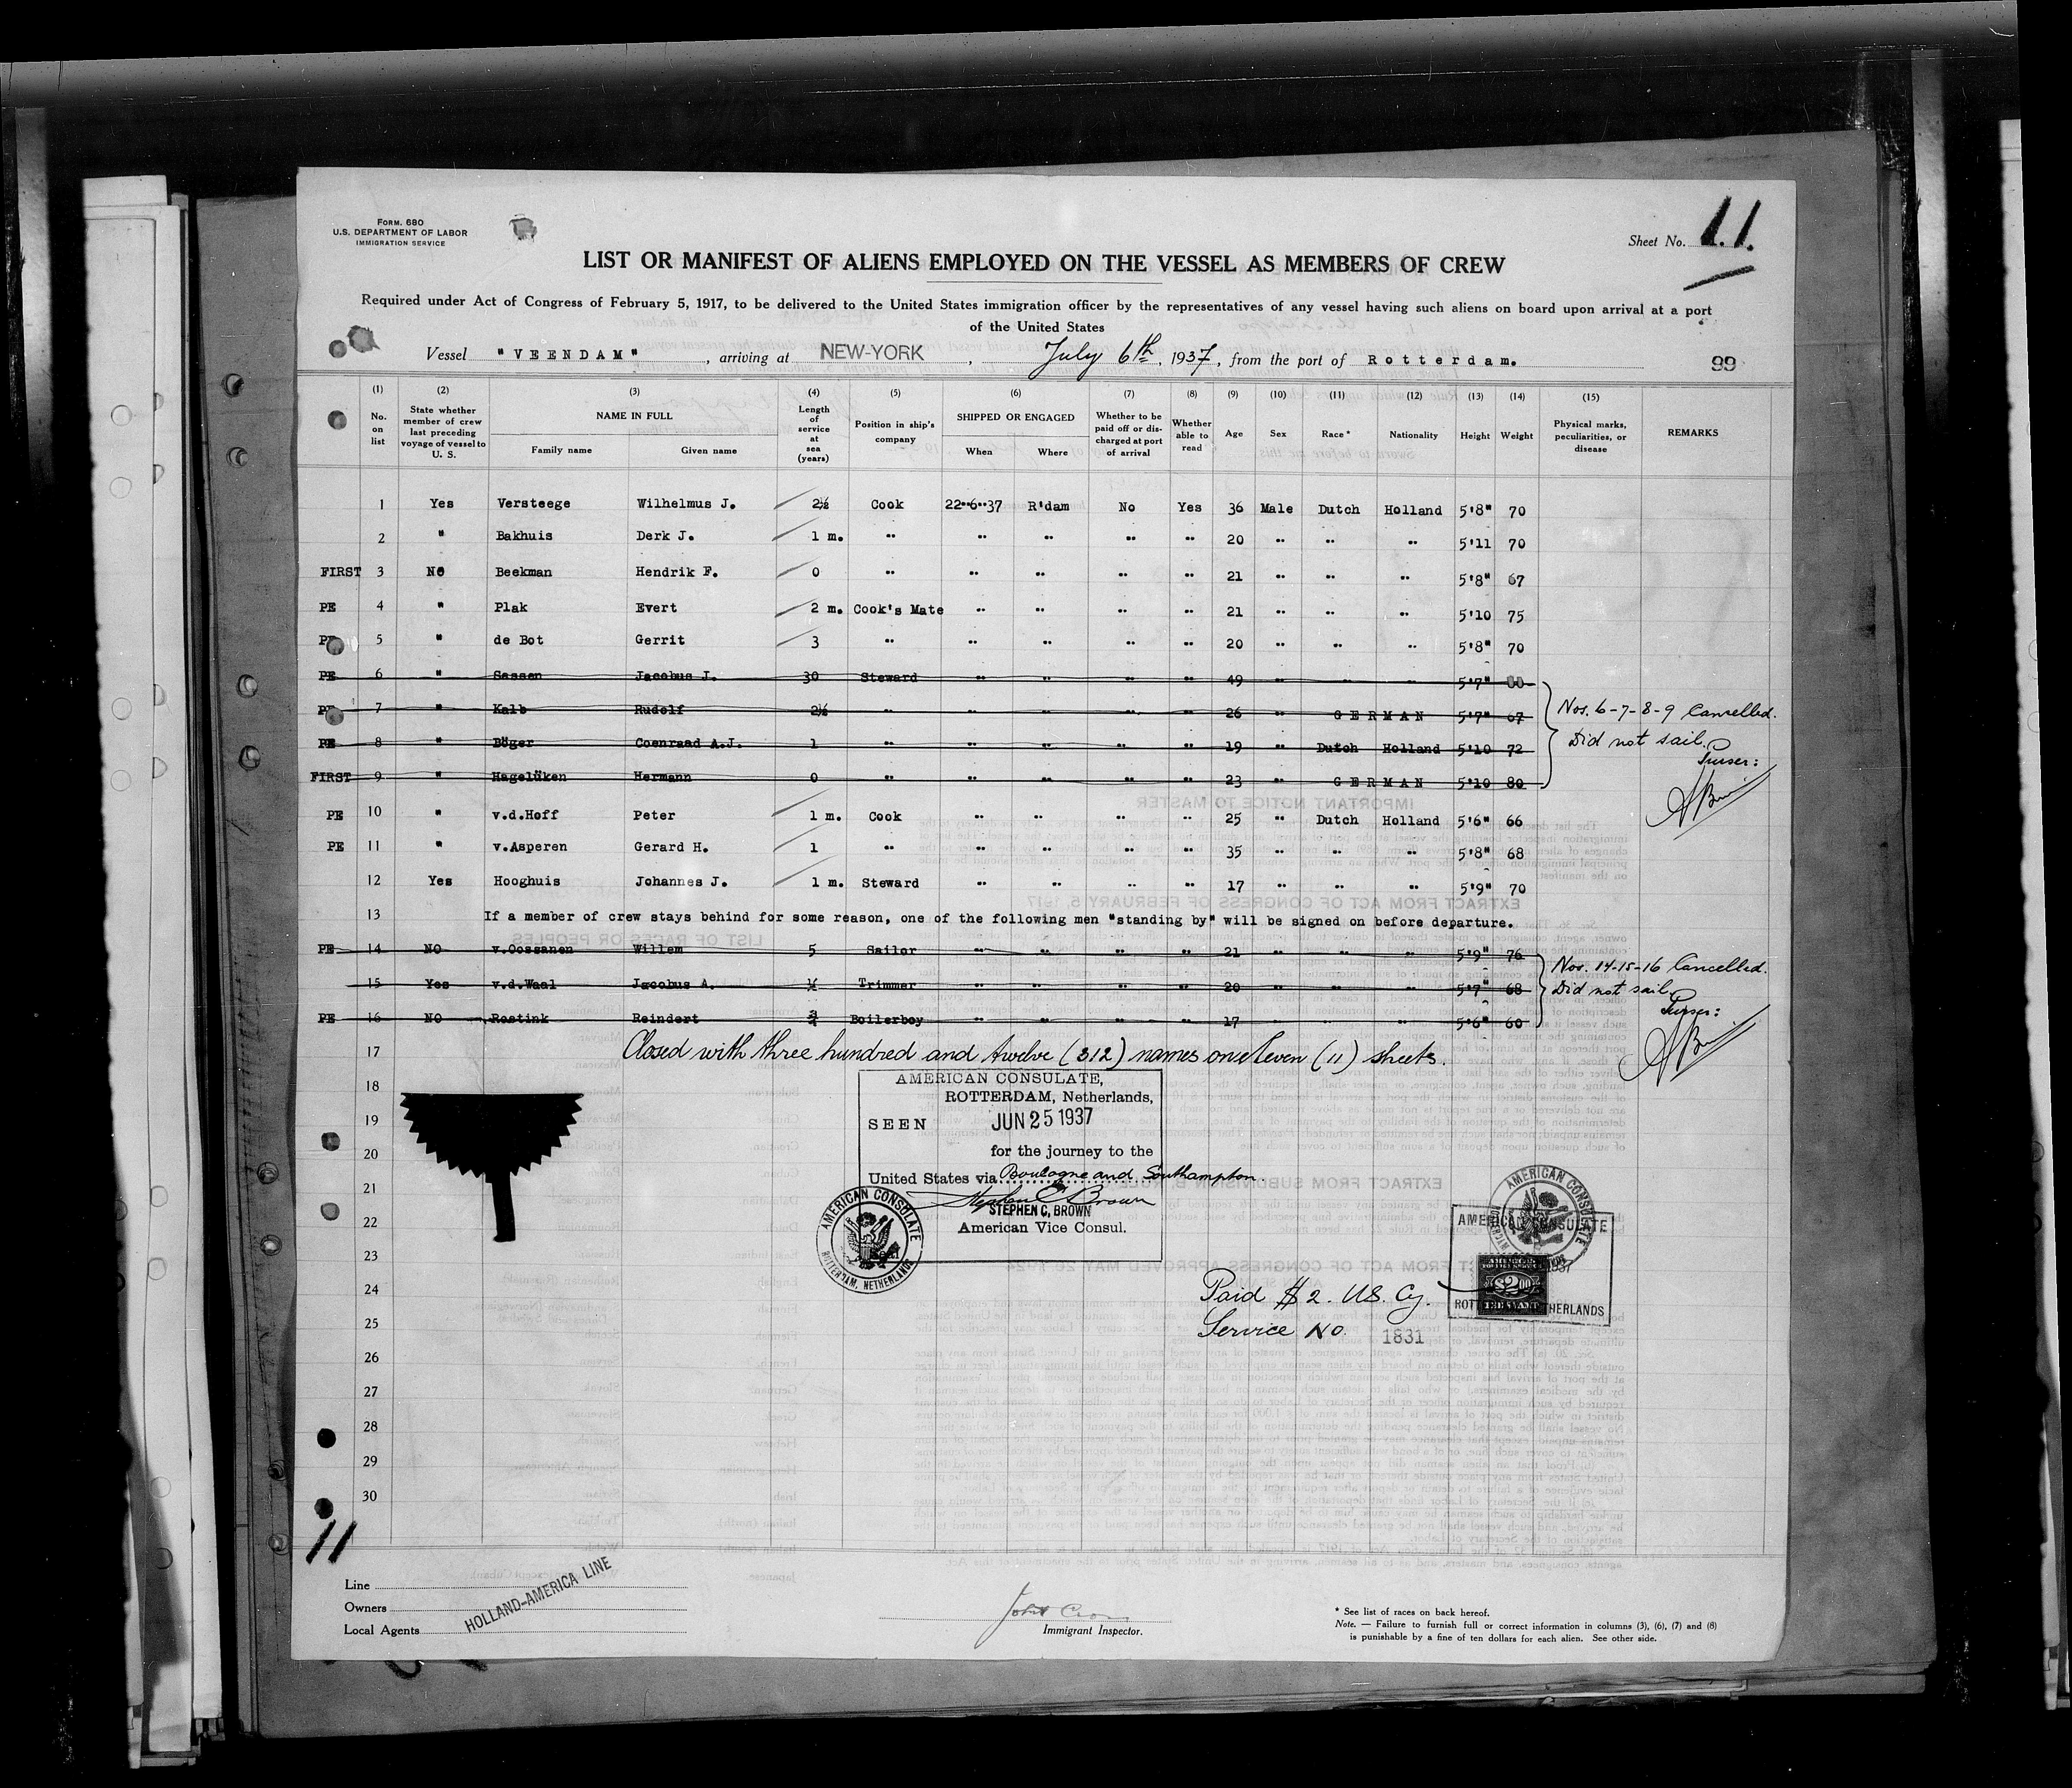 Form. 680
U.S. DEPARTMENT OF LABOR
IMMIGRATION SERVICE
Sheet No. 11.
LIST OR MANIFEST OF ALIENS EMPLOYED ON THE VESSEL AS MEMBERS OF CREW
Required under Act of Congress of February 5, 1917, to be delivered to the United States immigration officer by the representatives of any vessel having such aliens on board upon arrival at a port
of the United States
Vessel "VEENDAM", arriving at NEW-YORK, July 6th, 1937, from the port of Rotterdam. 99
(1) (2) (3) (4) (5) (6) (7) (8) (9) (10) (11) (12) (13) (14) (15)
No. on list State whether member of crew last preceding voyage of vessel to U. S. NAME IN FULL Family name Given name Length of service at sea (years) Position in ship's company SHIPPED OR ENGAGED When Where Whether to be paid off or discharged at port of arrival Whether able to read Age Sex Race* Nationality Height Weight Physical marks, peculiarities, or disease REMARKS
1 Yes Versteege Wilhelmus J. 2½ Cook 22"6"37 R'dam No Yes 36 Male Dutch Holland 5'8" 70
2 " Bakhuis Derk J. 1 m. " " " " " 20 " " " 5'11 70
FIRST 3 NO Beekman Hendrik F. 0 " " " " " 21 " " " 5'8" 67
PE 4 " Plak Evert 2 m. Cook's Mate " " " " 21 " " " 5'10 75
PE 5 " de Bot Gerrit 3 " " " " " 20 " " " 5'8" 70
PE 6 " Sassen Jacobus J. 30 Steward " " " " 49 " " " 5'7"
PE 7 " Kalb Rudolf 2½ " " " " " 26 " GERMAN 5'7" 67
PE 8 " Böger Coenraad A.J. 1 " " " " " 19 " Dutch Holland 5'10 72
FIRST 9 " Hagelüken Hermann 0 " " " " " 23 " GERMAN 5'10 80
Nos. 6-7-8-9 Cancelled.
Did not sail.
Purser:
PE 10 " v.d.Hoff Peter 1 m. Cook " " " " 25 " Dutch Holland 5'6" 66
PE 11 " v.Asperen Gerard H. 1 " " " " " 35 " " " 5'8" 68
12 Yes Hooghuis Johannes J. 1 m. Steward " " " " 17 " " " 5'9" 70
13 If a member of crew stays behind for some reason, one of the following men "standing by" will be signed on before departure.
PE 14 NO v.Oossanen Willem 5 Sailor " " " " 21 " " " 5'9" 76
15 Yes v.d.Waal Jacobus A. ½ Trimmer " " " " 20 " " " 5'7" 68
PE 16 NO Rostink Reindert ¾ Boilerboy " " " " 17 " " " 5'6" 60
Nos. 14-15-16 Cancelled.
Did not sail.
Purser:
17 Closed with three hundred and twelve (312) names on eleven (11) sheets.
18
19
20
21
22
23
24
25
26
27
28
29
30
AMERICAN CONSULATE,
ROTTERDAM, Netherlands,
SEEN JUN 25 1937
for the journey to the
United States via Boulogne and Southampton.
Stephen C Brown
STEPHEN C. BROWN
American Vice Consul.
Seal
AMERICAN CONSULATE
ROTTERDAM, NETHERLANDS
AMERICAN CONSULATE
AMERICAN CONSULATE
$2.00
ROTTERDAM, NETHERLANDS
Paid $2. US. Cy.
Service No. 1831
11
Line
Owners
Local Agents
HOLLAND-AMERICA LINE
Immigrant Inspector.
* See list of races on back hereof.
Note. — Failure to furnish full or correct information in columns (3), (6), (7) and (8)
is punishable by a fine of ten dollars for each alien. See other side.